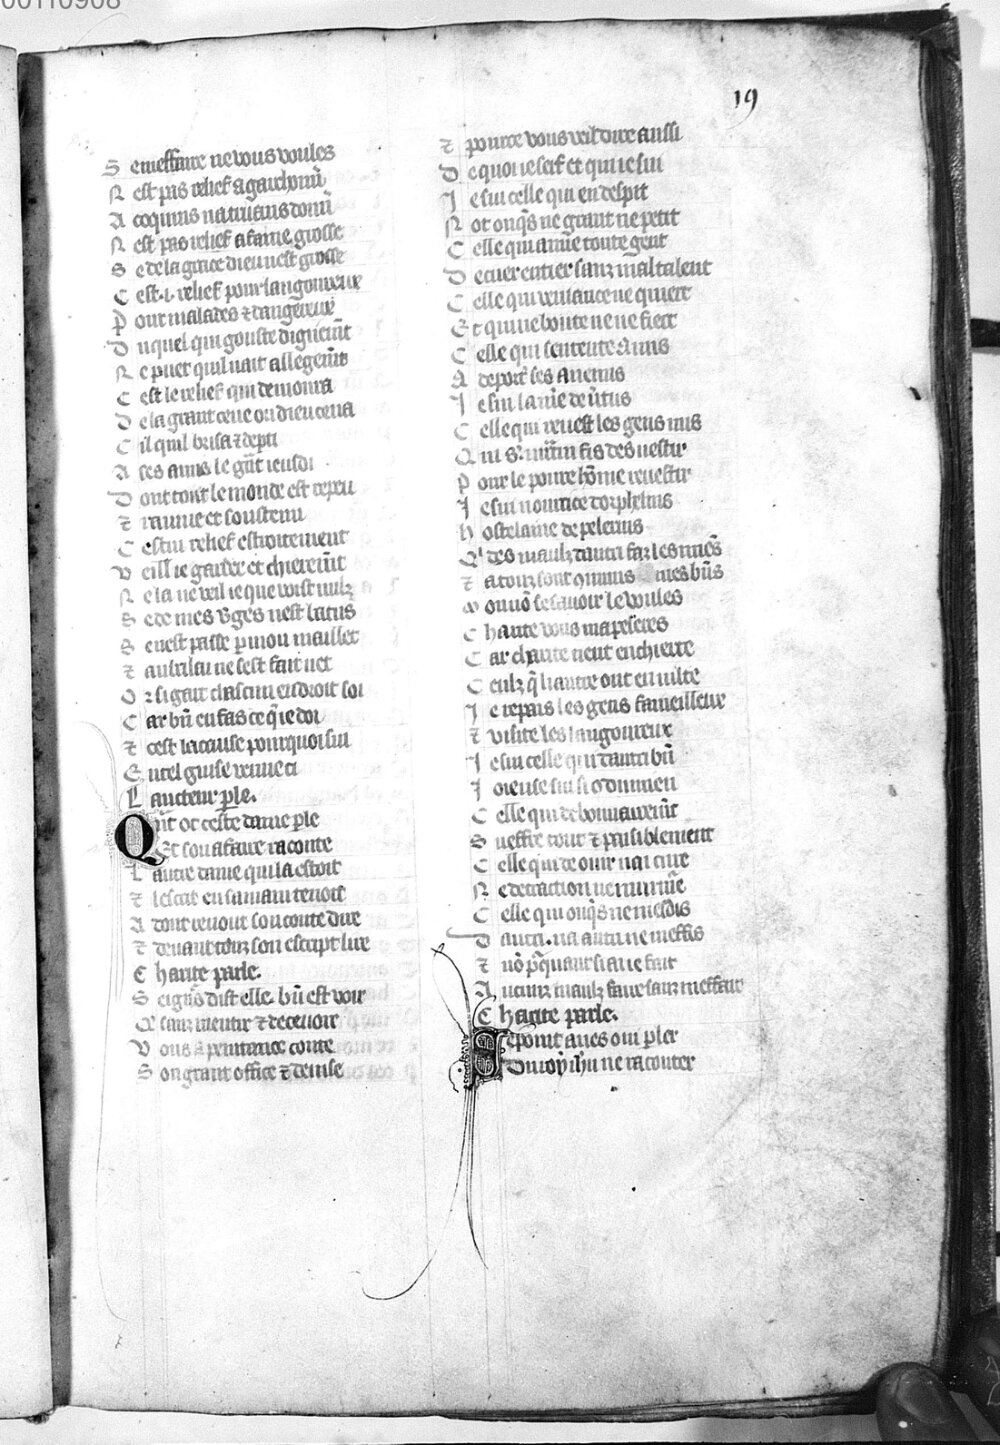 00110908
19
S e meffaire ne vous voules
N est pas relief a garchonn̄
A coquins na truans donn̄
N est pas relief a fame grosse
S e de la grace dieu nest grosse
C est .i. relief pour langoureux
P our malades ⁊ dangereux
D uquel qui gouste dignemt̄
N e puet quil nait allegemt̄
C est le relief qui demoura
D e la grant cene ou dieu cena
C il quil brisa ⁊ depti
A ses amis le gn̄t ieusdi
D ont tout le monde est repeu
⁊ rauiue et soustenu
C estui relief estroitement
V eill ie garder et chieremt̄
N e la ne veil ie que voist nulz
S e de mes v̄ges nest batus
S e nest passe p mon maillet
⁊ au balai ne sest fait net
O r si gart chascun endroit soi
C ar bn̄ en fas ce q̄ ie doi
⁊ cest la cause pourquoi sui
E n tel guise venue ci
L aucteur ple.
Q n̄t ot ceste dame ple
Et son afaire raconte
L autre dame qui la estoit
⁊ lescrit en sa main tenoit
A dont revout son conte dire
⁊ devant touz son escript lire
C harite parle.
S eign̄s dist elle. bn̄ est voir
Q̄ sanz mentir ⁊ decevoir
V ous a penitance conte
S on grant office ⁊ devise
⁊ pour ce vous veil dire aussi
D e quoi ie serf et qui ie sui
J e sui celle qui en despit
N ot onqs̄ ne grant ne petit
C elle qui aime toute gent
D e cuer entier sanz maltalent
C elle qui veniance ne quiert
Et qui ne boute ne ne fiert
C elle qui sentente a mis
A deport̄ ses anemis
J e sui la mē de v̄tus
C elle qui revest les gens nus
Q ui s. mātin fis desvestir
P our le poure hōme revestir
J e sui nourrice dorphelins
H ostelaine de pelerins
Qⁱ des maulz dautrui fas les miēs
⁊ a touz sont 9muns mes biēs
M on nō se savoir le voules
C harite vous mapeleres
C ar charite tient en chierte
C eulz q̄ li autre ont en vilte
J e repais les gens fameilleux
⁊ visite les langoureux
J e sui celle qui dautrui bn̄
J oieuse sui si 9 du mien
C elle qui debonnairemt̄
S ueffre tout ⁊ paisiblement
C elle qui de ouir na cure
N e detraction ne murmē
C elle qui onqs̄ ne mesdis
D autrui. na autrui ne meffis
⁊ nō p̄quant si ai ie fait
A ucunz maulz faire sanz meffait
C harite parle.
Se point aves oui pler
Du roy ihū ne raconter